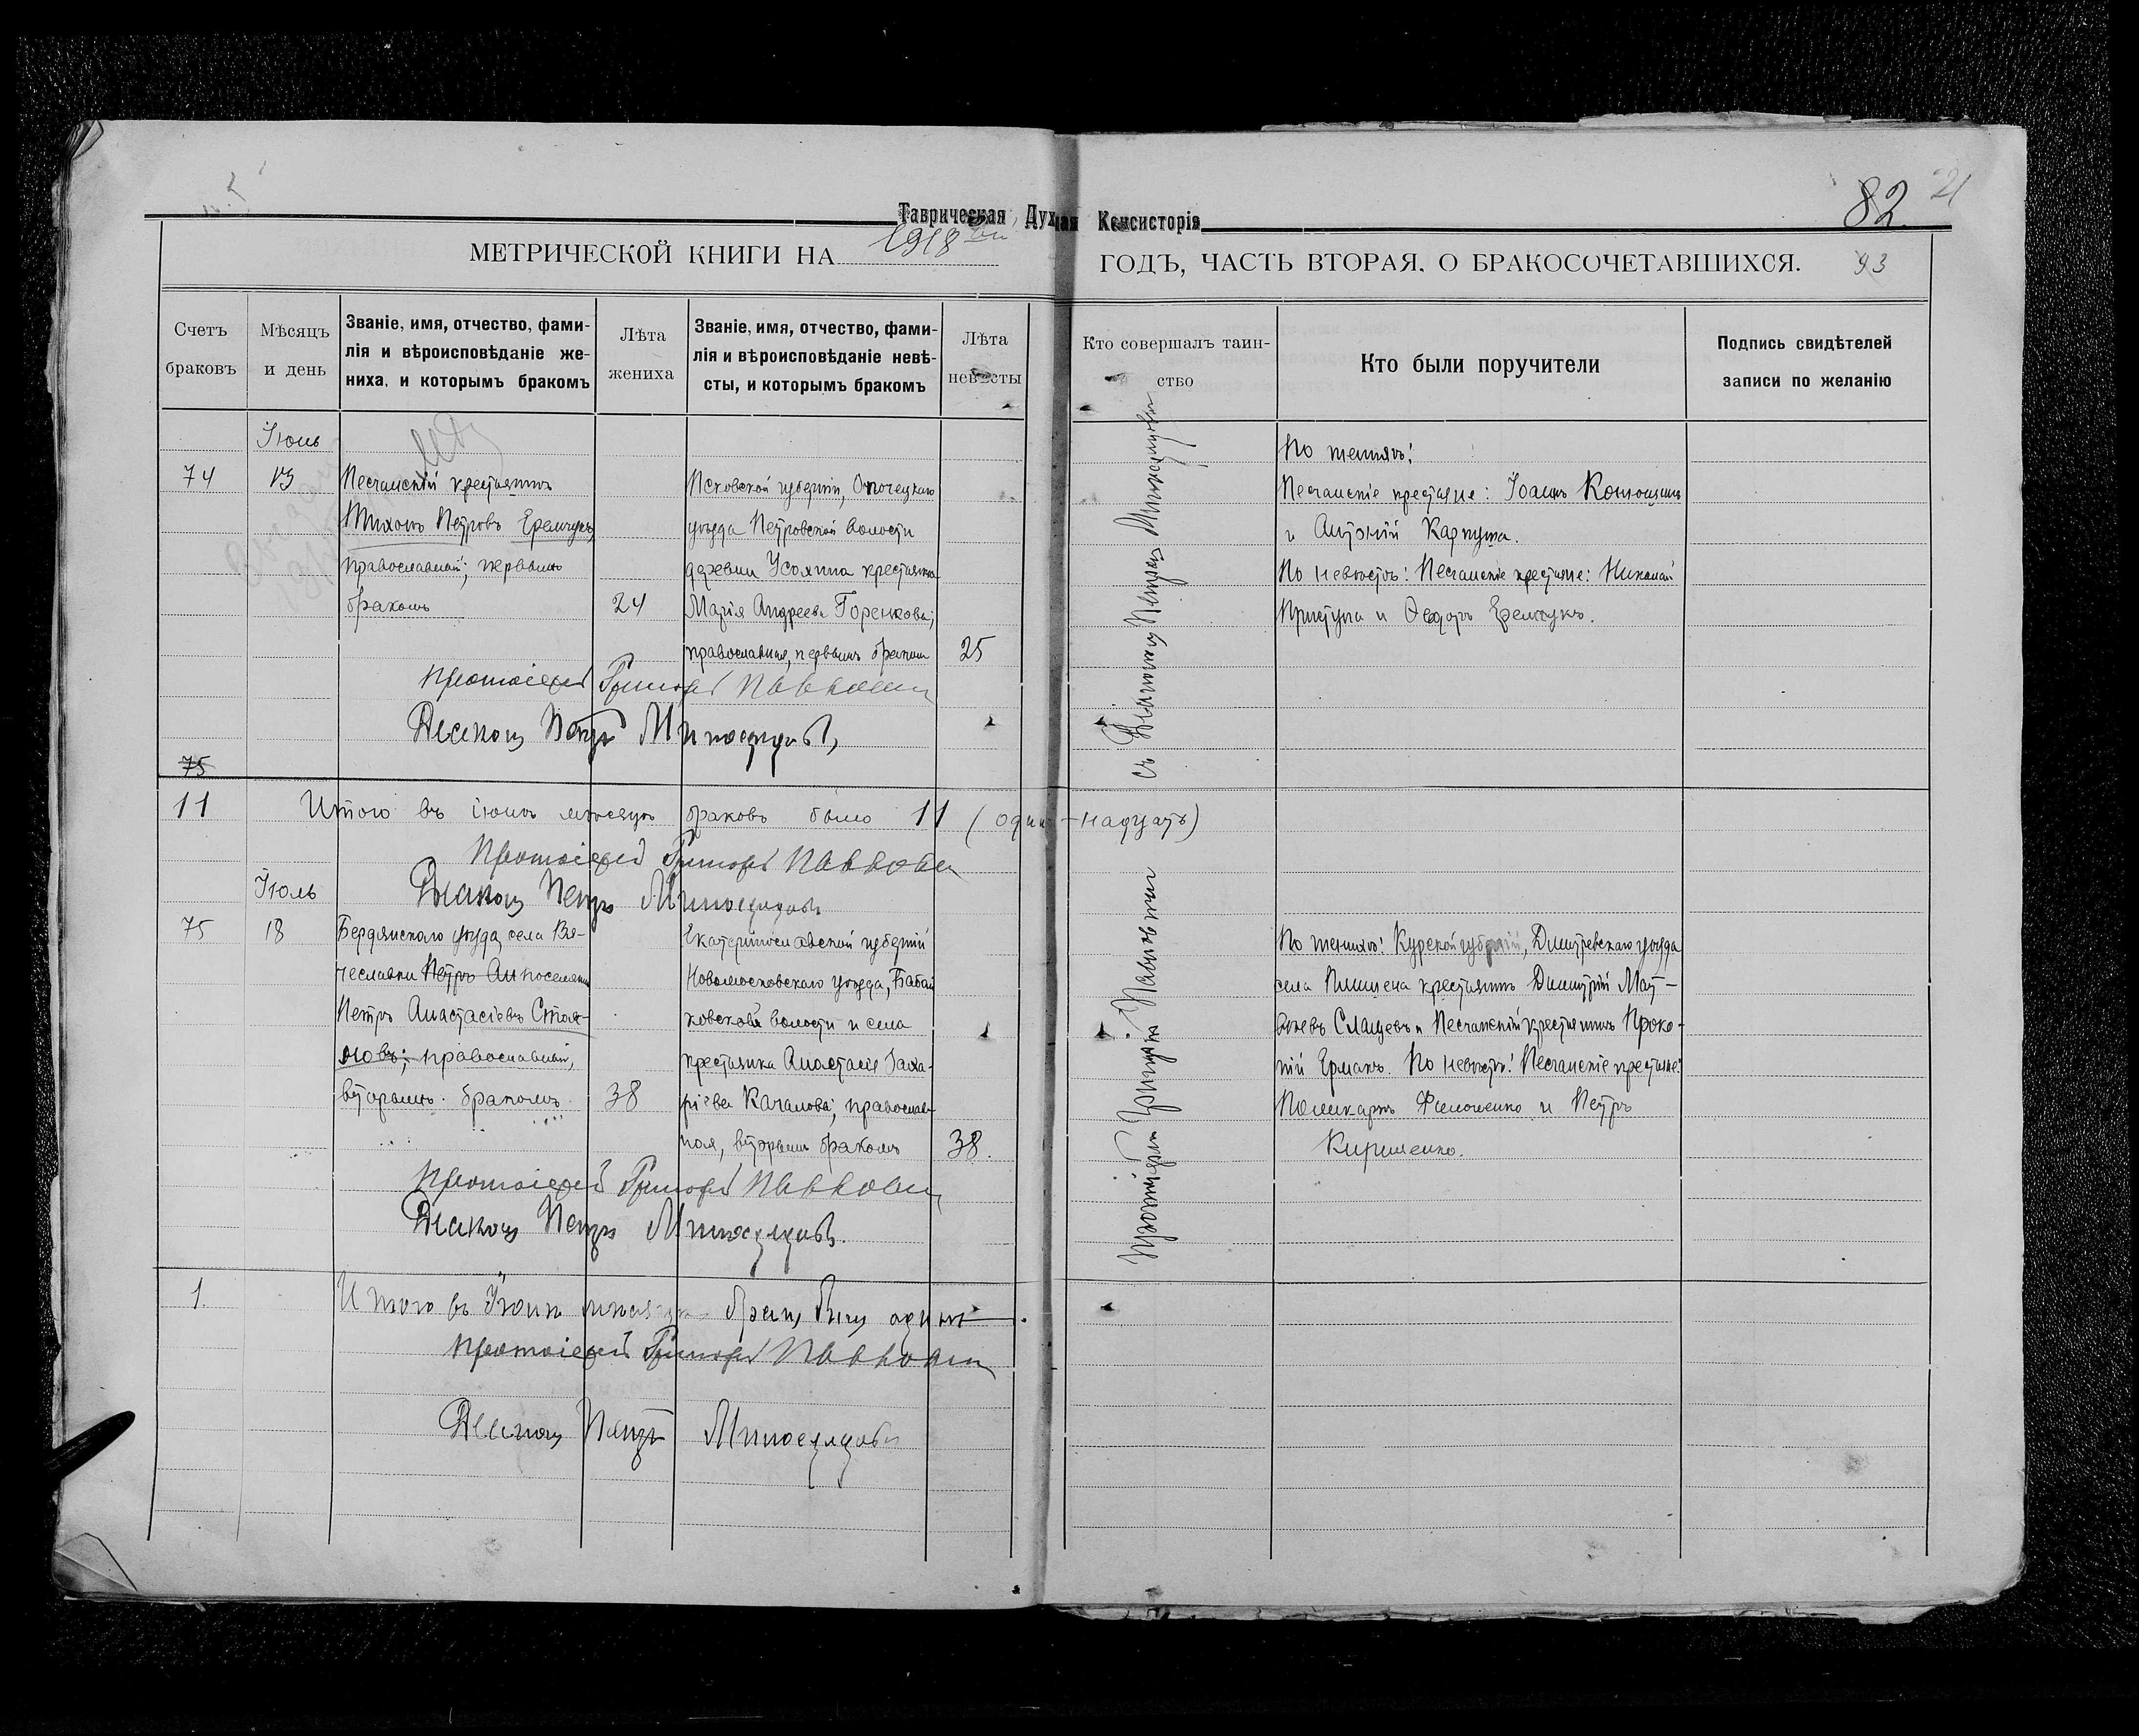 82
21
Таврическая Духовная Консисторія
МЕТРИЧЕСКОЙ КНИГИ НА 1918 ГОДЪ, ЧАСТЬ ВТОРАЯ, О БРАКОСОЧЕТАВШИХСЯ.
93
Счетъ браковъ
Мѣсяцъ и день
Званіе, имя, отчество, фами-
лія и вѣроисповѣданіе же-
ниха, и которымъ бракомъ
Лѣта жениха
Званіе, имя, отчество, фами-
лія и вѣроисповѣданіе невѣ-
сты, и которымъ бракомъ
Лѣта невѣсты
Кто совершалъ таин-
ство
Кто были поручители
Подпись свидѣтелей
записи по желанію
Іюнь
74
13
Песчанскій крестьянинъ
Тихонъ Петровъ Еремчукъ
православный; первымъ
бракомъ
24
Псковской губерніи, Опочецкаго
уѣзда Петровской волости
деревни Усохина крестьянка
Марія Андреева Горенкова;
православная, первымъ бракомъ
25
По женихѣ:
Песчанскіе крестьяне: Іоаннъ
и Антоній Карпуша.
По невѣстѣ: Песчанскіе крестьяне: Николай
Притула и Ѳеодоръ Еремчукъ.
Протоіерей Григорій Павловскій
Діаконъ Петръ Милосердовъ
75
11
Итого въ іюнѣ мѣсяцѣ браковъ было 11 (один-надцать)
Протоіерей Григорій Павловскій
Діаконъ Петръ Милосердовъ
Іюль
75
18
Бердянскаго уѣзда, села Вя-
чеславки Петръ Ан поселянинъ
Петръ Анастасіевъ Стоя-
новъ; православный,
вторымъ бракомъ
38
Екатеринославской губерніи
Новомосковскаго уѣзда, Бабай
ковской волости и села
крестьянка Анастасія Заха-
ріева Качанова; православ-
ная, вторымъ бракомъ
38.
Протоіереемъ Григоріемъ Павловскимъ
съ Діакономъ Петромъ Милосердовымъ
По женихѣ: Курской губерніи, Димитріевскаго уѣзда
села крестьянинъ Димитрій Мат-
ѳѣевъ Слащевъ и Песчанскій крестьянинъ Проко-
пій Ермакъ. По невѣстѣ: Песчанскіе крестьяне:
Поликарпъ Филоненко и Петръ
Кириленко.
Протоіерей Григорій Павловскій
Діаконъ Петръ Милосердовъ.
1.
Итого въ Іюлѣ мѣсяцѣ бракъ былъ одинъ.
Протоіерей Григорій Павловскій
Діаконъ Петръ Милосердовъ